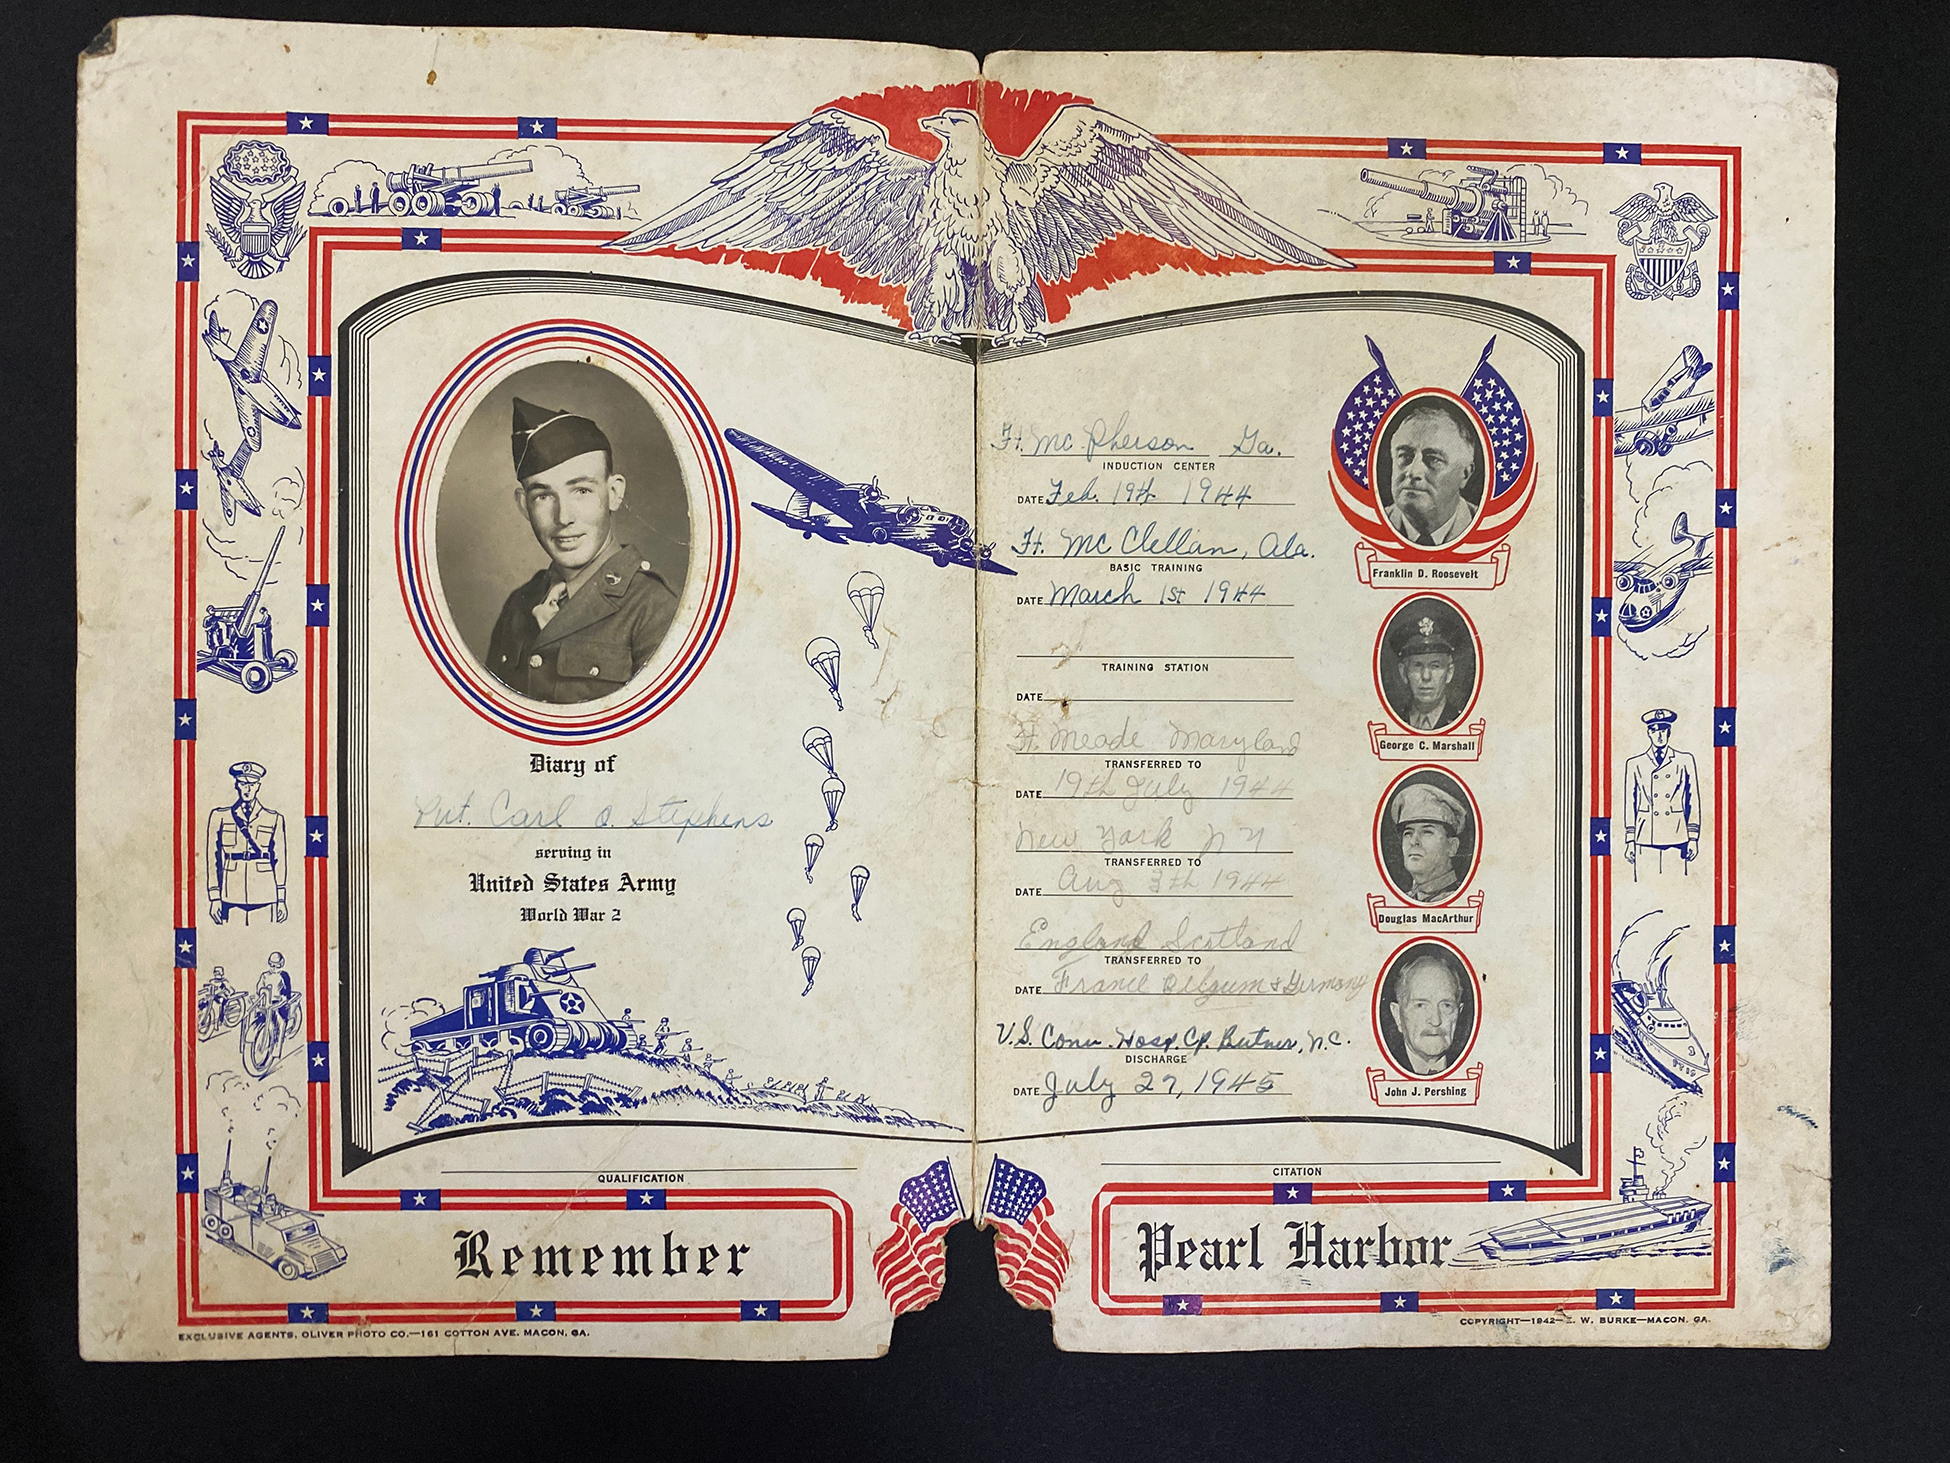 Diary of
Pvt. Carl O. Stephens
serving in
United States Army
World War 2
QUALIFICATION
Remember
EXCLUSIVE AGENTS, OLIVER PHOTO CO.—161 COTTON AVE. MACON, GA.
Ft. Mc Pherson Ga.
INDUCTION CENTER
DATE Feb. 19th 1944
Ft. Mc Clellan, Ala.
BASIC TRAINING
DATE March 1st 1944
TRAINING STATION
DATE
Ft. Meade Maryland
TRANSFERRED TO
DATE 19th July 1944
New York N Y
TRANSFERRED TO
DATE Aug 3th 1944
England Scotland
TRANSFERRED TO
DATE France Belgium & Germany
U.S. Conv. Hosp. Cp. Butner, N.C.
DISCHARGE
DATE July 27, 1945
Franklin D. Roosevelt
George C. Marshall
Douglas MacArthur
John J. Pershing
CITATION
Pearl Harbor
COPYRIGHT—1942—E. W. BURKE—MACON, GA.